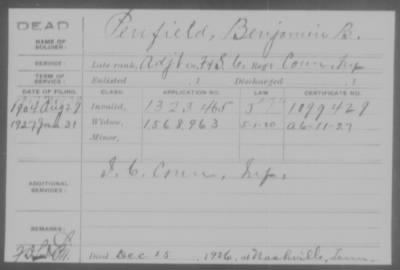 DEAD
NAME OF SOLDIER:
Penfield, Benjamin B.
SERVICE:
Late rank, Adjt Co. F & S, 6 Reg't Conn. Inf
TERM OF SERVICE:
Enlisted , 1 Discharged , 1
DATE OF FILING. CLASS. APPLICATION NO. LAW CERTIFICATE NO.
1904 Aug 29 Invalid, 1323465 1099429
1927 Jan 31 Widow, 1568963 5-1-20 a6-11-27
Minor,
ADDITIONAL SERVICES:
I. 6. Conn, Inf.
REMARKS:
Died Dec 15, 1926, at Nashville, Tenn.